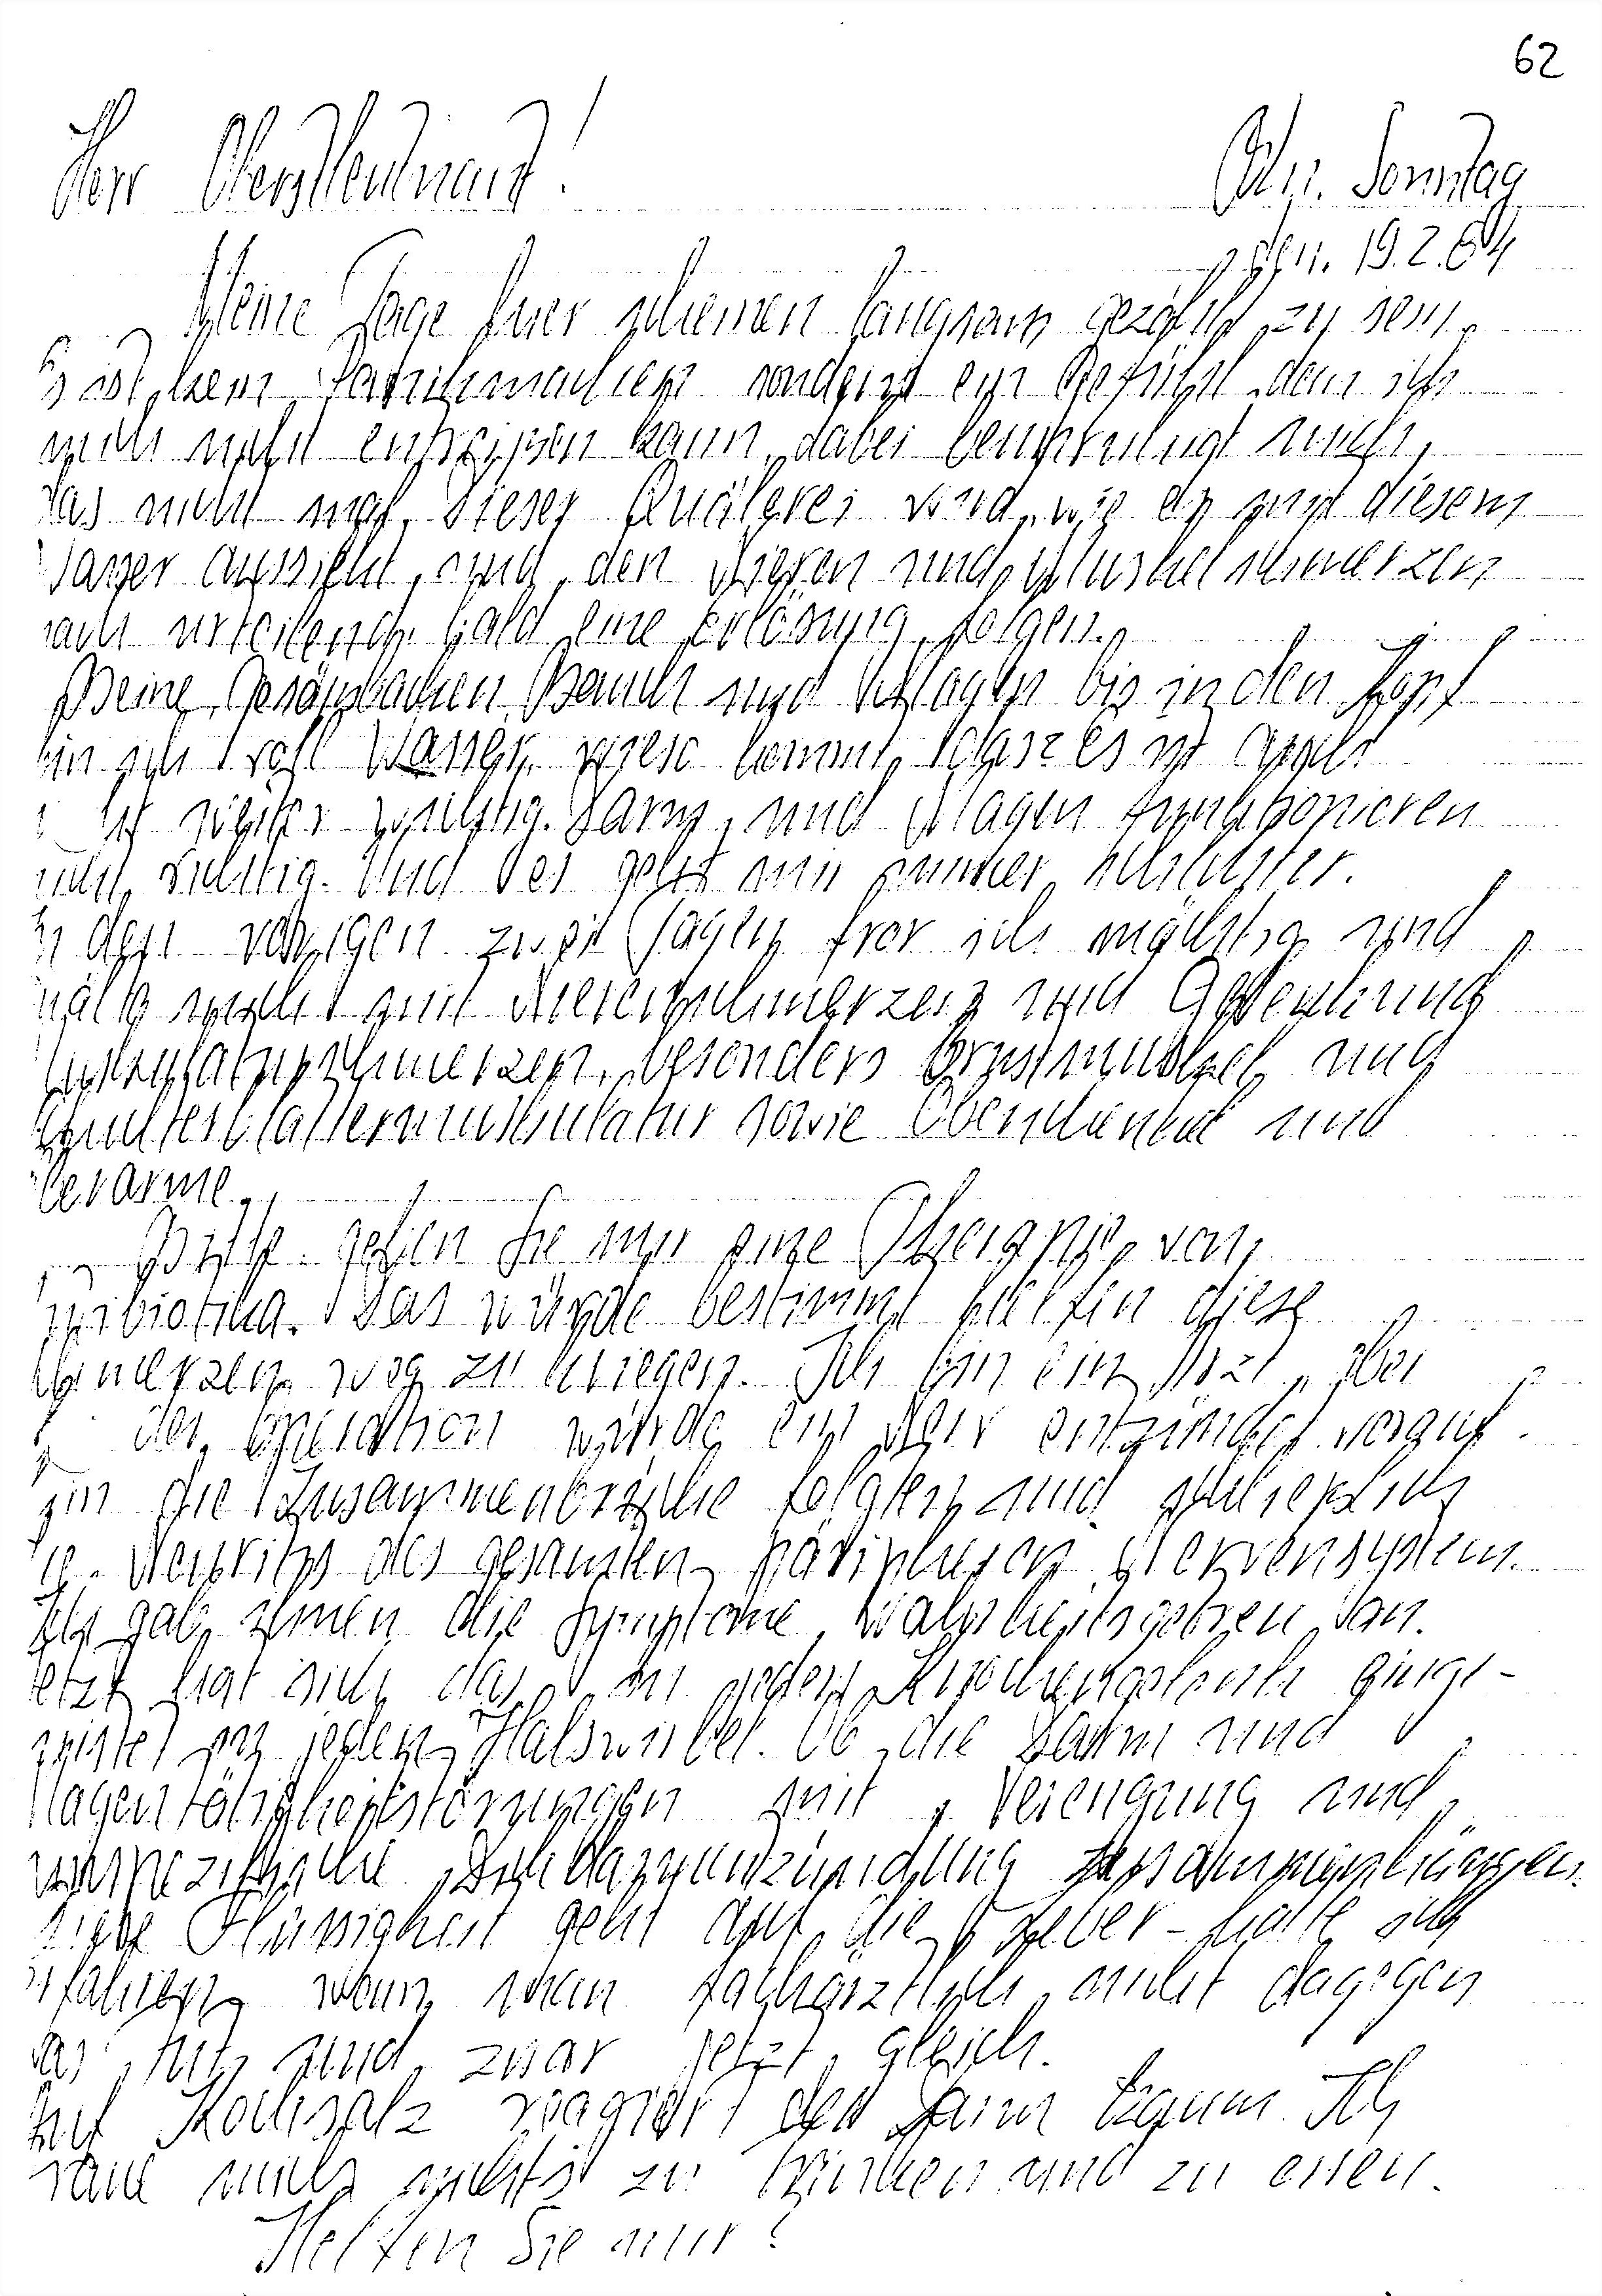 62
Herr Oberstleutnant!
Bln. Sonntag
den. 19.2.64
Meine Tage hier scheinen langsam gezählt zu sein.
Es ist kein Panikmachen sondern ein Gefühl dem ich
mich nicht entreißen kann, dabei beunruhigt mich,
das nicht mal, dieser Quälerei wird, wie es mit diesem
Lager aussieht, und den Nieren und Muskelschmerzen
nach urteilend, bald eine Erlösung folgen.
Beine, Gesäßbacken, Bauch und Magen bis in den Kopf
bin ich voll Wasser, wieso kommt, das es ist auch
weiter wichtig. Darm, und Magen funktionieren
nicht richtig. Und es geht mir immer schlechter.
In den vorigen zwei Tagen fror ich mächtig und
quälte mich mit Nierenschmerzen und Gelenk und
Muskulaturschmerzen, besonders Brustmuskel und
Schulterblattermuskulatur sowie Oberschenkel und
Oberarme.
Bitte geben Sie mir eine Therapie von
Antibiotika. Das würde bestimmt helfen diese
Schmerzen weg zu kriegen. Ich bin ein Arzt, bei
der Operation wurde ein Nerv entzündet worauf
die Zusammenbrüche folgten und schließlich
die Neuritis des gesamten päripheren Nervensystem.
Ich gab ihnen die Symptome wahrheitsgetreu an.
Jetzt hat sich das in jeden Knochengelenk einge-
nistet in jeden Halswirbel. Ob die Darm und
Magentätigkeitsstörungen mit Verengung und
zusammenhängen.
Flüssigkeit geht auf die Leber - hatte ich
erfahren, wenn man fachärztlich nicht dagegen
was tut, und zwar jetzt gleich.
Auf Kochsalz reagiert der Darm kaum. Ich
traue mich nichts zu trinken und zu essen.
Helfen Sie mir!